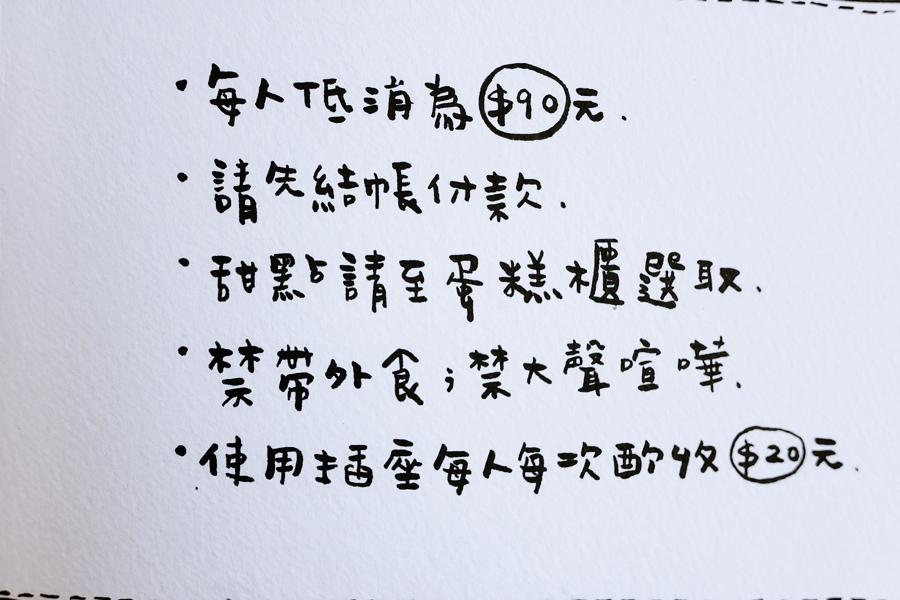 ・每人低消為$90元.
・請先結帳付款.
・甜點請至蛋糕櫃選取.
・禁帶外食；禁大聲喧嘩.
・使用插座每人每次酌收$20元.